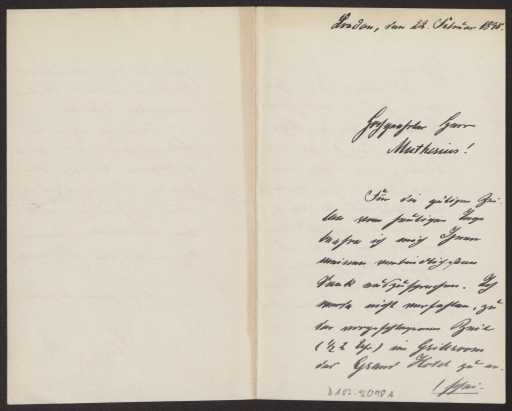 London, den 28. Februar 1898.
Hochgeehrter Herr
Muthesius!
Für die gütigen Zei-
len vom heutigen Tage
beehre ich mich Ihnen
meinen verbindlichsten
Dank auszusprechen. Ich
werde nicht verfehlen, zu
der vorgeschlagenen Zeit
(½ 2 Uhr) im Grillroom
des Grand Hotel zu er-